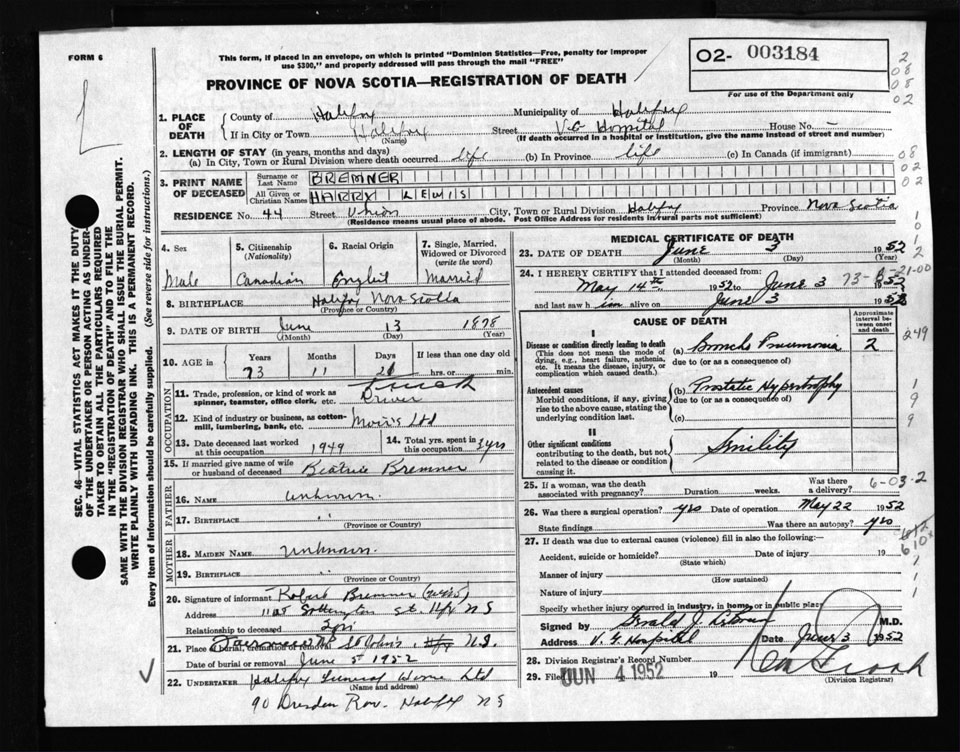 FORM 6
This form, if placed in an envelope, on which is printed "Dominion Statistics—Free, penalty for improper
use $300," and properly addressed will pass through the mail "FREE"
02- 003184
PROVINCE OF NOVA SCOTIA—REGISTRATION OF DEATH
For use of the Department only
1. PLACE OF DEATH
County of Halifax Municipality of Halifax
If in City or Town Halifax Street V.G. Hospital House No. —
(Name) (If death occurred in a hospital or institution, give the name instead of street and number)
2. LENGTH OF STAY (in years, months and days)
(a) In City, Town or Rural Division where death occurred life (b) In Province life (c) In Canada (if immigrant)
3. PRINT NAME OF DECEASED
Surname or Last Name BREMNER
All Given or Christian Names HARRY LEWIS
RESIDENCE No. 44 Street Union City, Town or Rural Division Halifax Province Nova Scotia
(Residence means usual place of abode. Post Office Address for residents in rural parts not sufficient)
4. Sex Male
5. Citizenship (Nationality) Canadian
6. Racial Origin English
7. Single, Married, Widowed or Divorced (write the word) Married
8. BIRTHPLACE Halifax Nova Scotia
(Province or Country)
9. DATE OF BIRTH June 13 1878
(Month) (Day) (Year)
10. AGE in Years Months Days If less than one day old
73 11 21 hrs. or min.
OCCUPATION
11. Trade, profession, or kind of work as spinner, teamster, office clerk, etc. Truck Driver
12. Kind of industry or business, as cotton-mill, lumbering, bank, etc. Ltd
13. Date deceased last worked at this occupation 1949
14. Total yrs. spent in this occupation 3 yrs
15. If married give name of wife or husband of deceased Beatrice Bremner
FATHER
16. NAME unknown.
17. BIRTHPLACE "
(Province or Country)
MOTHER
18. MAIDEN NAME unknown.
19. BIRTHPLACE "
(Province or Country)
20. Signature of informant Robert Bremner
Address St. Hfx NS
Relationship to deceased Son
21. Place of burial, cremation or removal St John's N.S.
Date of burial or removal June 5 1952
22. UNDERTAKER Halifax Funeral Home Ltd
(Name and address)
90 Dresden Row. Halifax NS
MEDICAL CERTIFICATE OF DEATH
23. DATE OF DEATH June 3 1952
(Month) (Day)
24. I HEREBY CERTIFY that I attended deceased from
May 14th 1952 to June 3 1952
and last saw him alive on June 3 1952
CAUSE OF DEATH
Approximate interval between onset and death
I
Disease or condition directly leading to death
(This does not mean the mode of dying, e.g., heart failure, asthenia, etc. It means the disease, injury, or complication which caused death.)
(a) Broncho Pneumonia 2
due to (or as a consequence of)
Antecedent causes
Morbid conditions, if any, giving rise to the above cause, stating the underlying condition last.
(b) Prostatic Hypertrophy
due to (or as a consequence of)
(c)
II
Other significant conditions
contributing to the death, but not related to the disease or condition causing it.
Senility
25. If a woman, was the death associated with pregnancy? Duration weeks. Was there a delivery?
26. Was there a surgical operation? yes Date of operation May 22 1952
State findings Was there an autopsy? yes
27. If death was due to external causes (violence) fill in also the following:—
Accident, suicide or homicide? Date of injury 19
(State which)
Manner of injury
(How sustained)
Nature of injury
Specify whether injury occurred in industry, in home or in public place
Signed by Gerald J. M.D.
Address V. G. Hospital Date June 3 1952
28. Division Registrar's Record Number
29. Filed JUN 4 1952 19
(Division Registrar)
SEC. 46—VITAL STATISTICS ACT MAKES IT THE DUTY
OF THE UNDERTAKER OR PERSON ACTING AS UNDER-
TAKER TO OBTAIN ALL THE PARTICULARS REQUIRED
IN THE "REGISTRATION OF DEATH" AND TO FILE THE
SAME WITH THE DIVISION REGISTRAR WHO SHALL ISSUE THE BURIAL PERMIT.
WRITE PLAINLY WITH UNFADING INK. THIS IS A PERMANENT RECORD.
Every item of information should be carefully supplied. (See reverse side for instructions.)
2
08
08
02
08
02
02
1
0
1
2
249
1
9
9
6-03-2
1
1
1